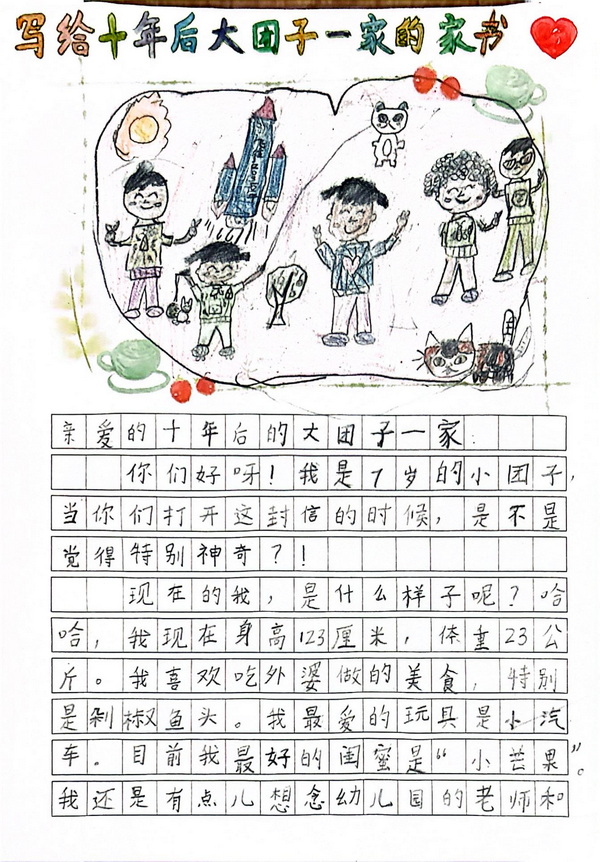 写给十年后大团子一家的家书
亲爱的十年后的大团子一家:
你们好呀!我是7岁的小团子,
当你们打开这封信的时候,是不是
觉得特别神奇?!
现在的我,是什么样子呢?哈
哈,我现在身高123厘米,体重23公
斤。我喜欢吃外婆做的美食,特别
是剁椒鱼头。我最爱的玩具是小汽
车。目前我最好的闺蜜是“小芒果”。
我还是有点儿想念幼儿园的老师和